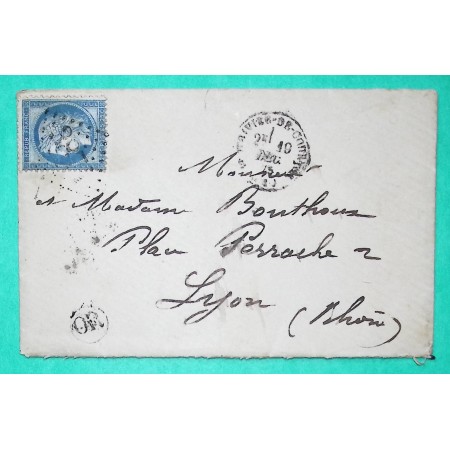 Monsieur
et Madame Bouthoux
Place Perrache 2
Lyon
(Rhône)
OR